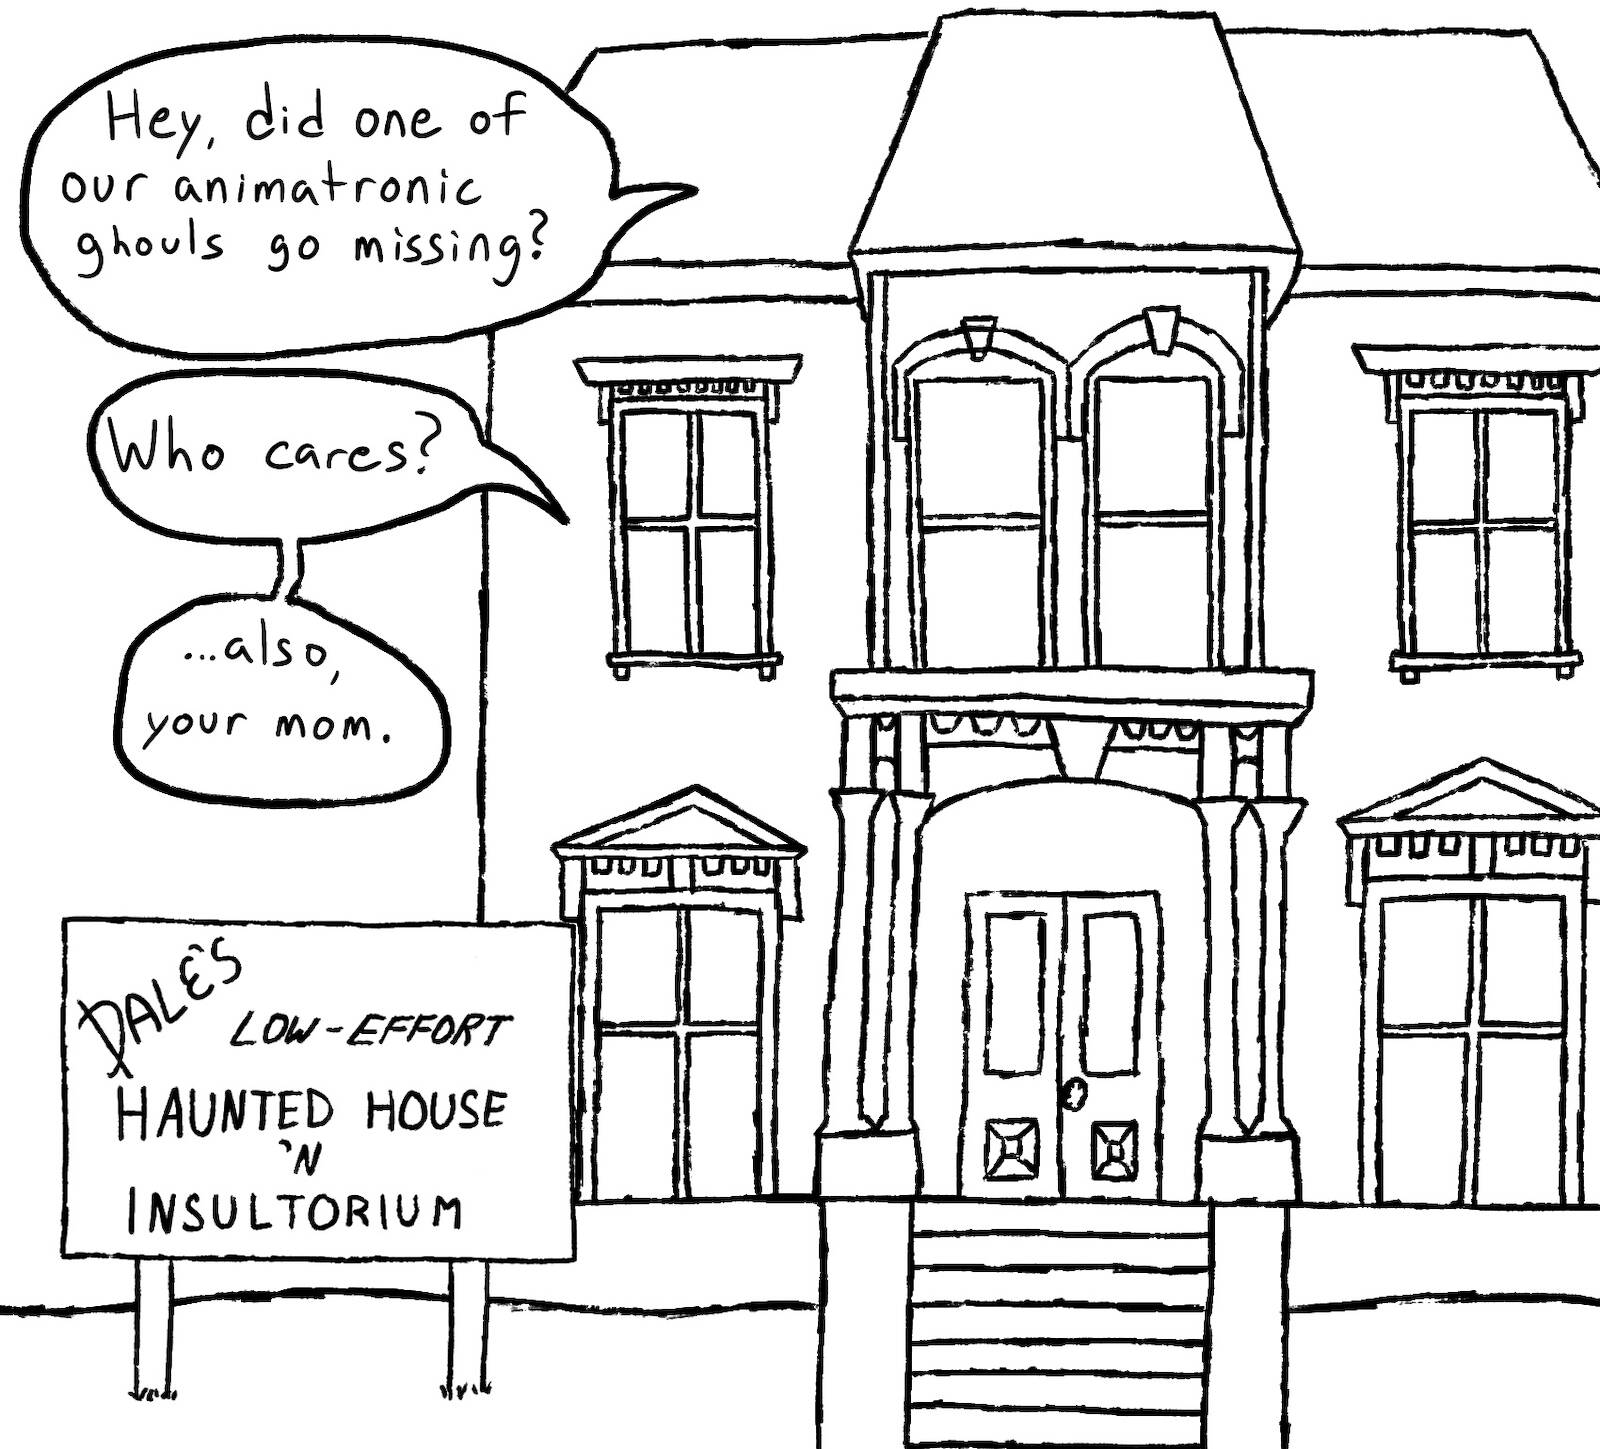 Hey, did one of
our animatronic
ghouls go missing?
Who cares?
...also,
your mom.
DALE'S
LOW-EFFORT
HAUNTED HOUSE
'N
INSULTORIUM